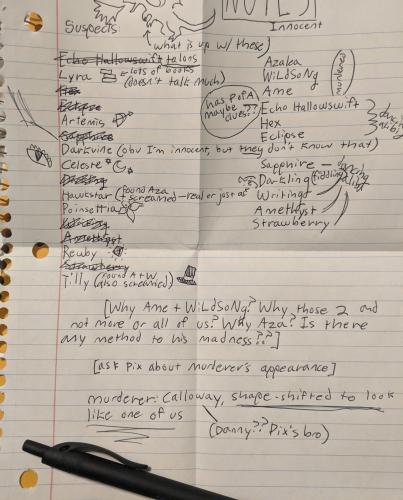 NOTES
Suspects:
Innocent
what is up w/ these)
Echo Hallowswift talons
Lyra lots of books
(doesn't talk much)
Hex
Eclipse
Artemis
Sapphire
Darkvine (obv I'm innocent, but they don't know that)
Celeste
Darkling
Hawkstar (found Aza + screamed - real or just
Poinsettia
Writing
Amethyst
Reuby
Strawberry
Tilly (found A+W
(also screamed)
Azaka
WiLdSoNg
Ame
murdered
has PofA
maybe
clues??
Echo Hallowswift
Hex
Eclipse
Sapphire -
Darkling
Writing
Amethyst
Strawberry
[Why Ame + WiLdSoNg? Why those 2 and
not more or all of us? Why Aza? Is there
any method to his madness???]
[ask Pix about murderer's appearance]
murderer: Calloway, shape-shifted to look
like one of us
(Danny?? Pix's bro)